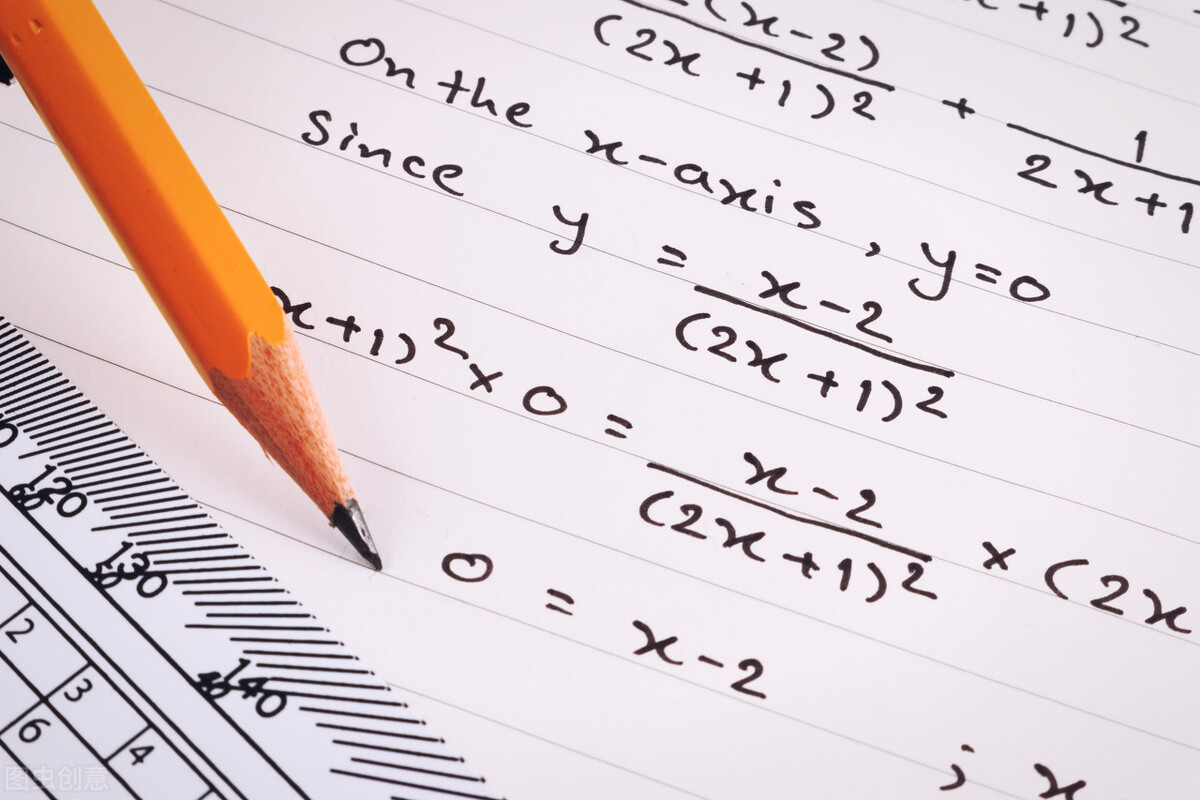 (x-2)
(2x+1)² + 1
2x+1
x+1)²
On the x-axis, y=0
Since y = x-2
(2x+1)²
x+1)² × 0 = x-2
(2x+1)² × (2x
0 = x-2
; x
120
60
130
50
140
40
2
3
4
6
图虫创意